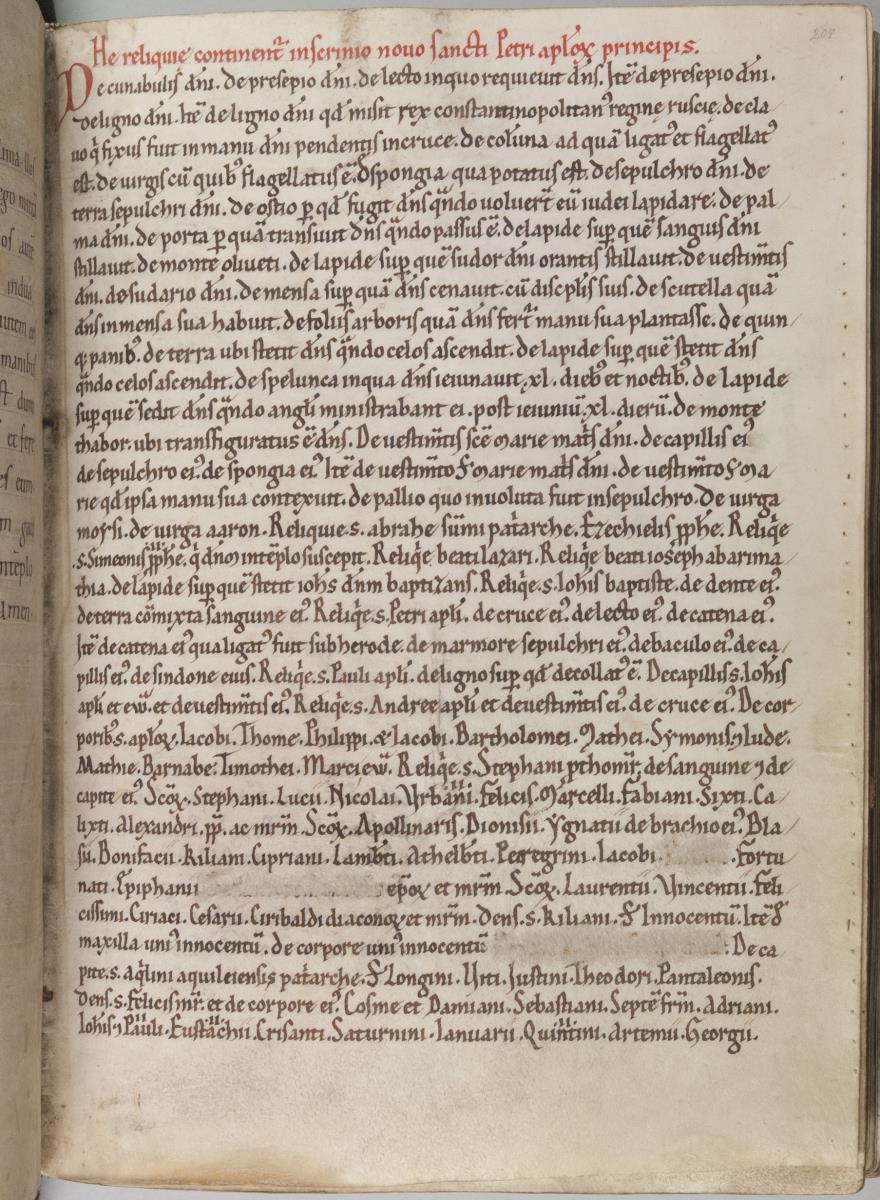 He reliquie continent᷑ in scrinio nouo sancti Petri apl̄oꝝ principis.
De cunabulis dn̄i. de presepio dn̄i. de lecto in quo requieuit dn̄s. Itē de presepio dn̄i.
De ligno dn̄i. Itē de ligno dn̄i qd̄ misit rex constantinopolitan᾽ regine ruscie. de cla
uo q̄ fixus fuit in manu dn̄i pendentis in cruce. de colūna ad quā ligat᾽ et flagellat᾽
est. de uirgis cū quib᾽ flagellatus ē. d spongia qua potatus est. de sepulchro dn̄i. de
terra sepulchri dn̄i. de ostio p qd̄ fugit dn̄s qn̄do uoluer̄t eū iudei lapidare. de pal
ma dn̄i. de porta p quā transiuit dn̄s qn̄do passus ē. de lapide sup quē sanguis dn̄i
stillauit. de monte oliueti. de lapide sup quē sudor dn̄i orantis stillauit. de uestim̄tis
dn̄i. de sudario dn̄i. de mensa sup quā dn̄s cenauit. cū discipl̄is suis. de scutella quā
dn̄s in mensa sua habuit. de foliis arboris quā dn̄s fert᷑ manu sua plantasse. de quin
q; panib᾽. de terra ubi stetit dn̄s qn̄do celos ascendit. de lapide sup quē stetit dn̄s
qn̄do celos ascendit. de spelunca in qua dn̄s ieiunauit .xl. dieb᾽ et noctib᾽. de lapide
sup quē sedit dn̄s qn̄do angl̄i ministrabant ei. post ieiuniū .xl. dierū. de monte
thabor. ubi transfiguratus ē dn̄s. De uestim̄tis sc̄e marie mat̄s dn̄i. de capillis ei᾽
de sepulchro ei᾽. de spongia ei᾽. Itē de uestim̄to S marie mat̄s dn̄i. de uestim̄to S ma
rie qd̄ ipsa manu sua contexuit. de pallio quo inuoluta fuit in sepulchro. De uirga
moysi. de uirga aaron. Reliquie .s. abrahe sūmi pat̄arche. Ezechielis pphē. Reliq̄e
.s. Simeonis pphē. q̄ dn̄m in tēplo suscepit. Reliq̄e beati lazari. Reliq̄e beati ioseph ab arima
thia. de lapide sup quē stetit ioh̄s dn̄m baptizans. Reliq̄e .s. Ioh̄is baptiste. de dente ei᾽.
de terra cōmixta sanguine ei᾽. Reliq̄e .s. Petri apl̄i. de cruce ei᾽. de lecto ei᾽. de catena ei᾽.
Itē de catena ei᾽ qua ligat᾽ fuit sub herode. de marmore sepulchri ei᾽. de baculo ei᾽. de ca
pillis ei᾽. de sindone eius. Reliq̄e .s. Pauli apl̄i. de ligno sup qd̄ decollat᾽ ē. De capillis .s. Ioh̄is
apl̄i et ew̄. et de uestim̄tis ei᾽. Reliq̄e .s. Andree apl̄i et de uestim̄tis ei᾽. de cruce ei᾽. De cor
porib᾽ .s. apl̄oꝝ. Iacobi. Thome. Philippi. & Iacobi. Bartholomei. Mathei. Symonis ⁊ Iude.
Mathie. Barnabe. Timothei. Marci ew̄. Reliq̄e .s. Stephani pthom̄r. de sanguine ⁊ de
capite ei᾽. Sc̄oꝝ. Stephani. Lucii. Nicolai. Vrbani. Felicis. Marcelli. Fabiani. Sixti. Ca
lixti. Alexandri. pp̄. ac mr̄m. Sc̄oꝝ. Apollinaris. Dionisii. Ygnatii de brachio ei᾽. Bla
sii. Bonifacii. Kiliani. Cipriani. Lamb̄ti. Athelb̄ti. Peregrini. Iacobi. Fortu
nati. Epiphanii ep̄oꝝ et mr̄m. Sc̄oꝝ. Laurentii. Vincentii. Feli
cissimi. Ciriaci. Cesarii. Ciribaldi diaconoꝝ et mr̄m. Dens .s. Kiliani. S Innocentū. Itē d
maxilla uni᾽ innocentū. de corpore uni᾽ innocentū. De ca
pite .s. aq̄lini aquileiensis pat̄arche. S Longini. Viti. Iustini. Theodori. Pantaleonis.
Dens .s. Felicis mr̄. et de corpore ei᾽. Cosme et Damiani. Sebastiani. Septē fr̄m. Adriani.
Ioh̄is ⁊ Pauli. Eustachii. Crisanti. Saturnini. Ianuarii. Quintini. Artemii. Georgii.